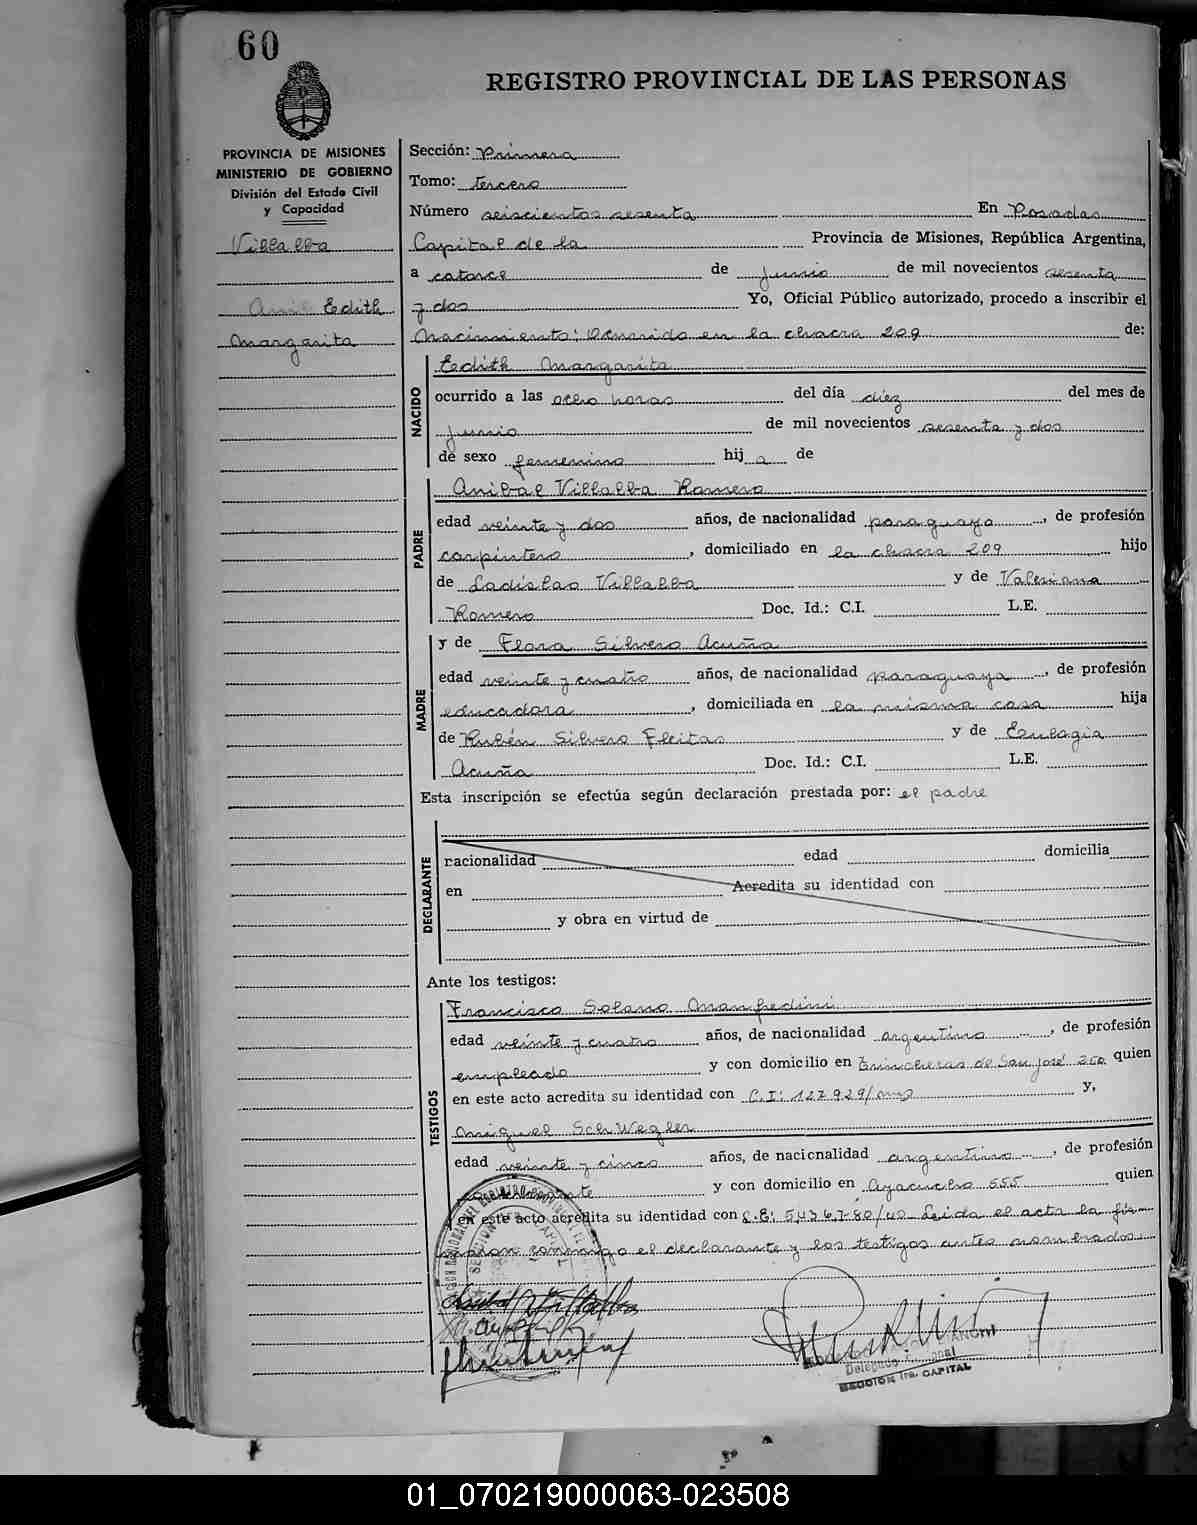 60
REGISTRO PROVINCIAL DE LAS PERSONAS
PROVINCIA DE MISIONES
MINISTERIO DE GOBIERNO
División del Estado Civil
y Capacidad
Villalba
Edith
Margarita
Sección: Primera
Tomo: tercero
Número seiscientos sesenta En Posadas
Capital de la Provincia de Misiones, República Argentina,
a catorce de junio de mil novecientos sesenta
y dos Yo, Oficial Público autorizado, procedo a inscribir el
Nacimiento: Ocurrido en la chacra 209 de:
NACIDO
Edith Margarita
ocurrido a las ocho horas del día diez del mes de
junio de mil novecientos sesenta y dos
de sexo femenino hij a de
PADRE
Anibal Villalba Romero
edad veinte y dos años, de nacionalidad paraguaya, de profesión
carpintero, domiciliado en la chacra 209 hijo
de Ladislao Villalba y de Valeriana
Romero Doc. Id.: C.I. L.E.
MADRE
y de Flora Silvero Acuña
edad veinte y cuatro años, de nacionalidad paraguaya, de profesión
educadora, domiciliada en la misma casa hija
de Rubén Silvero Fleitas y de Eulogia
Acuña Doc. Id.: C.I. L.E.
Esta inscripción se efectúa según declaración prestada por: el padre
DECLARANTE
nacionalidad edad domicilia
en Acredita su identidad con
y obra en virtud de
Ante los testigos:
TESTIGOS
Francisco Solano Manfredini
edad veinte y cuatro años, de nacionalidad argentino, de profesión
empleado y con domicilio en Trincheras de San José 250 quien
en este acto acredita su identidad con C.I: 127.929/ y,
Miguel SchWegler
edad veinte y cinco años, de nacionalidad argentino, de profesión
y con domicilio en Ayacucho 555 quien
en este acto acredita su identidad con Leida el acta la fir-
maron conmigo el declarante y los testigos antes nombrados.
SECCION 1ra. CAPITAL
01_070219000063-023508